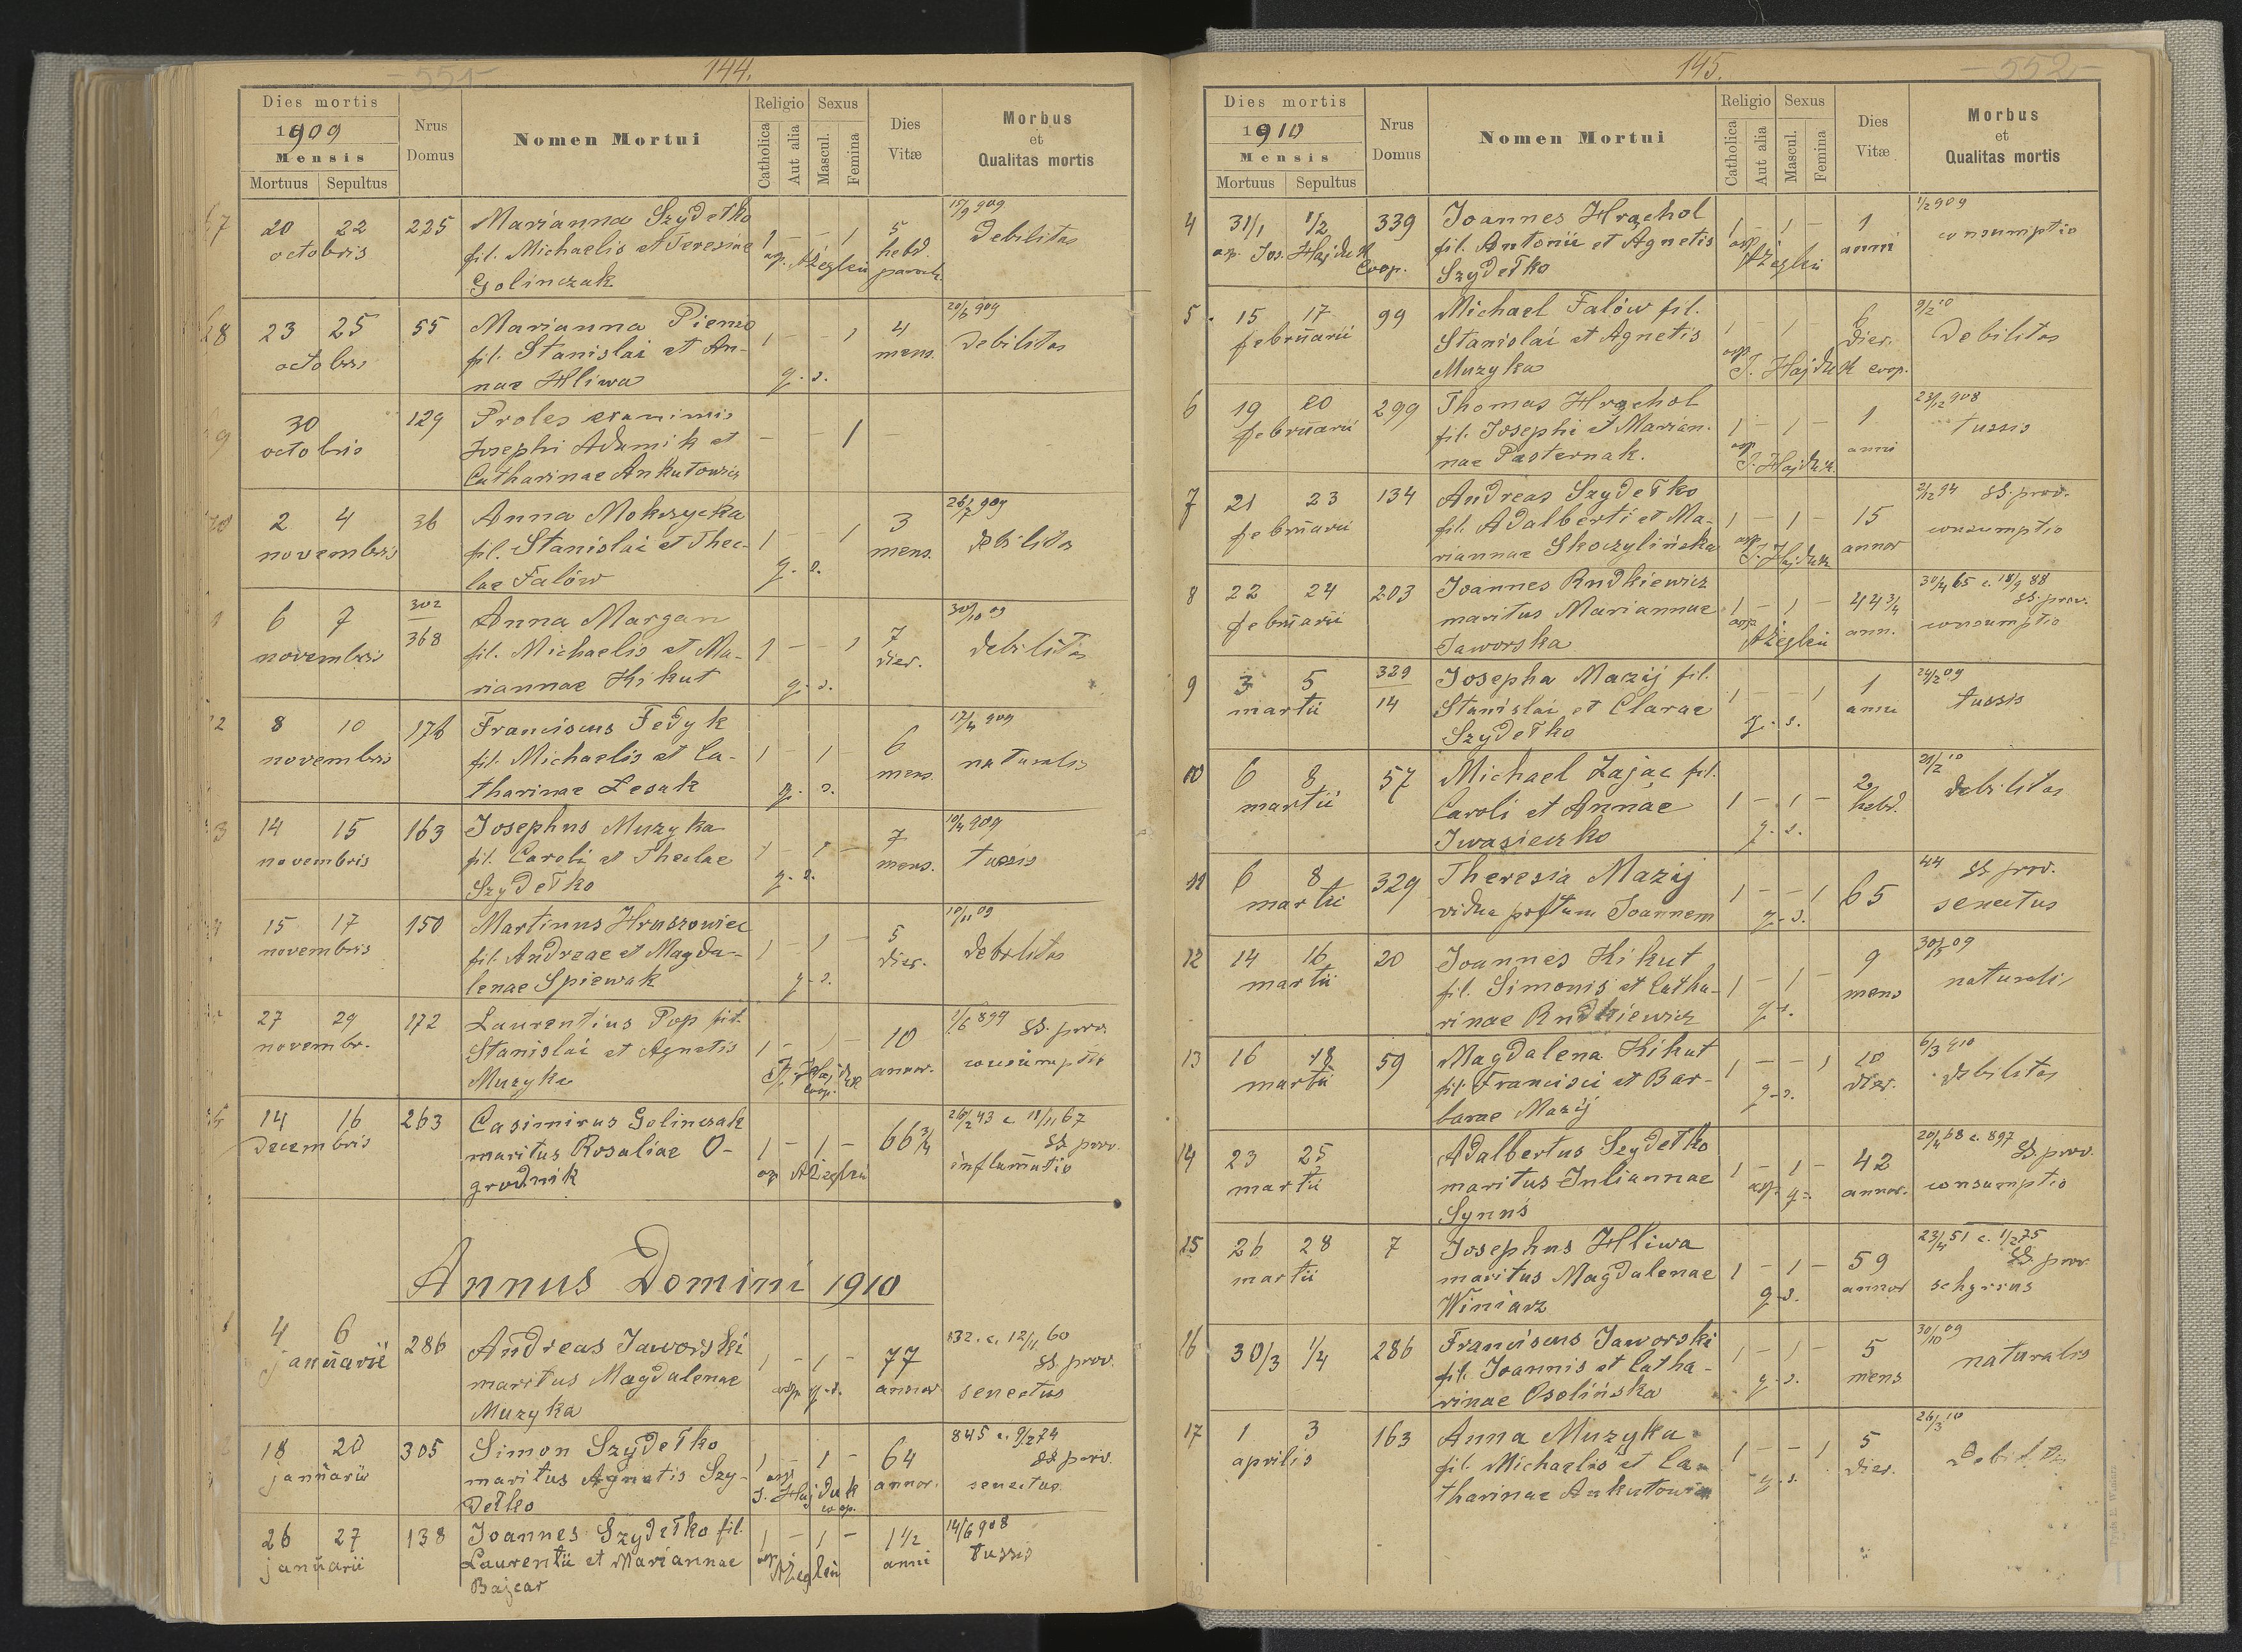 144.
Dies mortis
1909
Mensis
Mortuus Sepultus
Nrus
Domus
Nomen Mortui
Religio
Catholica
Aut alia
Sexus
Mascul.
Femina
Dies
Vitæ
Morbus
et
Qualitas mortis
20 22 225 Marianna Szydełko 1 – – 1 5 15/9 909
octobris fil. Michaelis et Teresiae hebd. debilitas
Golinczak
23 25 55 Marianna Pienio 1 – – 1 4
octobris fil. Stanislai et An- mens. debilitas
nae Hliwa g. s.
30 129 Proles exanimis
octobris Josephi Adamik et – – 1 –
Catharinae Ankutowicz
2 4 36 Anna Mokrzycka 1 – – 1 3 26/7 909
novembris fil. Stanislai et Thec- mens. debilitas
lae Falów g. s.
6 7 302/368 Anna Margan 1 – – 1 7 30/10 09
novembris fil. Michaelis et Ma- dier. debilitas
riannae Kikut g. s.
8 10 176 Franciscus Fedyk 1 – 1 6 17/4 909
novembris fil. Michaelis et Ca- mens. naturalis
tharinae Lesak g. s.
14 15 163 Josephus Muzyka 1 – 1 – 7 10/4 909
novembris fil. Caroli et Theclae mens. tussis
Szydełko g. s.
15 17 150 Martinus Hruszowiec 1 – 1 – 5 10/11 09
novembris fil. Andreae et Magda- dier. debilitas
lenae Spiewak g. s.
27 29 172 Laurentius Pop fil. 1 – 1 – 10 2/6 899 SS. prov.
novembr. Stanislai et Agnetis annor. consumptio
Muzyka J. Hajduk coop.
14 16 263 Casimirus Golinczak 1 – 1 – 66 3/4 26/2 43 c. 18/11 67
Decembris maritus Rosaliae O- SS. prov.
grodnik inflammatio
Annus Domini 1910
4 6 286 Andreas Jaworski 1 – 1 – 77 832. c. 12/11 60
januarii maritus Magdalenae asp. g. s. annor. SS. prov.
Muzyka senectus
18 20 305 Simon Szydełko 1 – 1 – 64 845 c. 9/2 74
januarii maritus Agnetis Szy- asp. annor. SS. prov.
dełko J. Hajduk coop. senectus
26 27 138 Joannes Szydełko fil. 1 – 1 – 1 1/2 14/6 908
januarii Laurentii et Mariannae asp. anni tussis
Bajcar
145.
552
Dies mortis
1910
Mensis
Mortuus Sepultus
Nrus
Domus
Nomen Mortui
Religio
Catholica
Aut alia
Sexus
Mascul.
Femina
Dies
Vitæ
Morbus
et
Qualitas mortis
4 31/1 1/2 339 Joannes Hrąchol 1 – 1 – 1 1/2 909
asp. Jos. Hajduk coop. fil. Antonii et Agnetis asp. anni consumptio
Szydełko
5 15 17 99 Michael Falów fil. 1 1 – 6 9/2 10
februarii Stanislai et Agnetis asp. dier. debilitas
Muzyka J. Hajduk coop.
6 19 20 299 Thomas Hrąchol 1 – 1 – 1 23/12 908
februarii fil. Josephi et Marian- asp. anni tussis
nae Pasternak. J. Hajduk
7 21 23 134 Andreas Szydełko 1 – 1 – 15 2/12 94 SS. prov.
februarii fil. Adalberti et Ma- asp. annor consumptio
riannae Skoczylińska J. Hajduk
8 22 24 203 Joannes Rudkiewicz 1 – 1 – 44 3/4 30/4 65 c. 18/1 88
februarii maritus Mariannae asp. ann. SS. prov.
Jaworska consumptio
9 3 5 329/14 Josepha Mazij fil. 1 – – 1 1 24/2 09
martii Stanislai et Clarae anni tussis
Szydełko g. s.
10 6 8 57 Michael Zając fil. 1 – 1 – 2 21/2 10
martii Caroli et Annae hebd. debilitas
Iwasieczko g. s.
11 6 8 329 Theresia Mazij 1 – – 1 65 44 SS prov.
martii vidua post um Joannem g. s. senectus
12 14 16 20 Joannes Kikut 1 – 1 – 9 30/5 09
martii fil. Simonis et Catha- mens naturalis
rinae Rudkiewicz g. s.
13 16 18 59 Magdalena Kikut 1 – – 1 10 6/3 910
martii fil. Francisci et Bar- dier. debilitas
barae Mazij g. s.
14 23 25 Adalbertus Szydełko 1 – 1 – 42 20/4 68 c. 897
martii maritus Juliannae asp. annor. SS. prov.
Synuś consumptio
15 26 28 7 Josephus Hliwa 1 – 1 – 59 23/4 51 c. 1/2 75
martii maritus Magdalenae annor SS. prov.
Winiarz g. s.
16 30/3 1/4 286 Franciscus Jaworski 1 – 1 – 5 30/10 09
fil. Joannis et Catha- mens naturalis
rinae Osolińska g. s.
17 1 3 163 Anna Muzyka 1 – – 1 5 26/3 10
aprilis fil. Michaelis et Ca- dier. debilitas
tharinae Ankutowicz g. s.